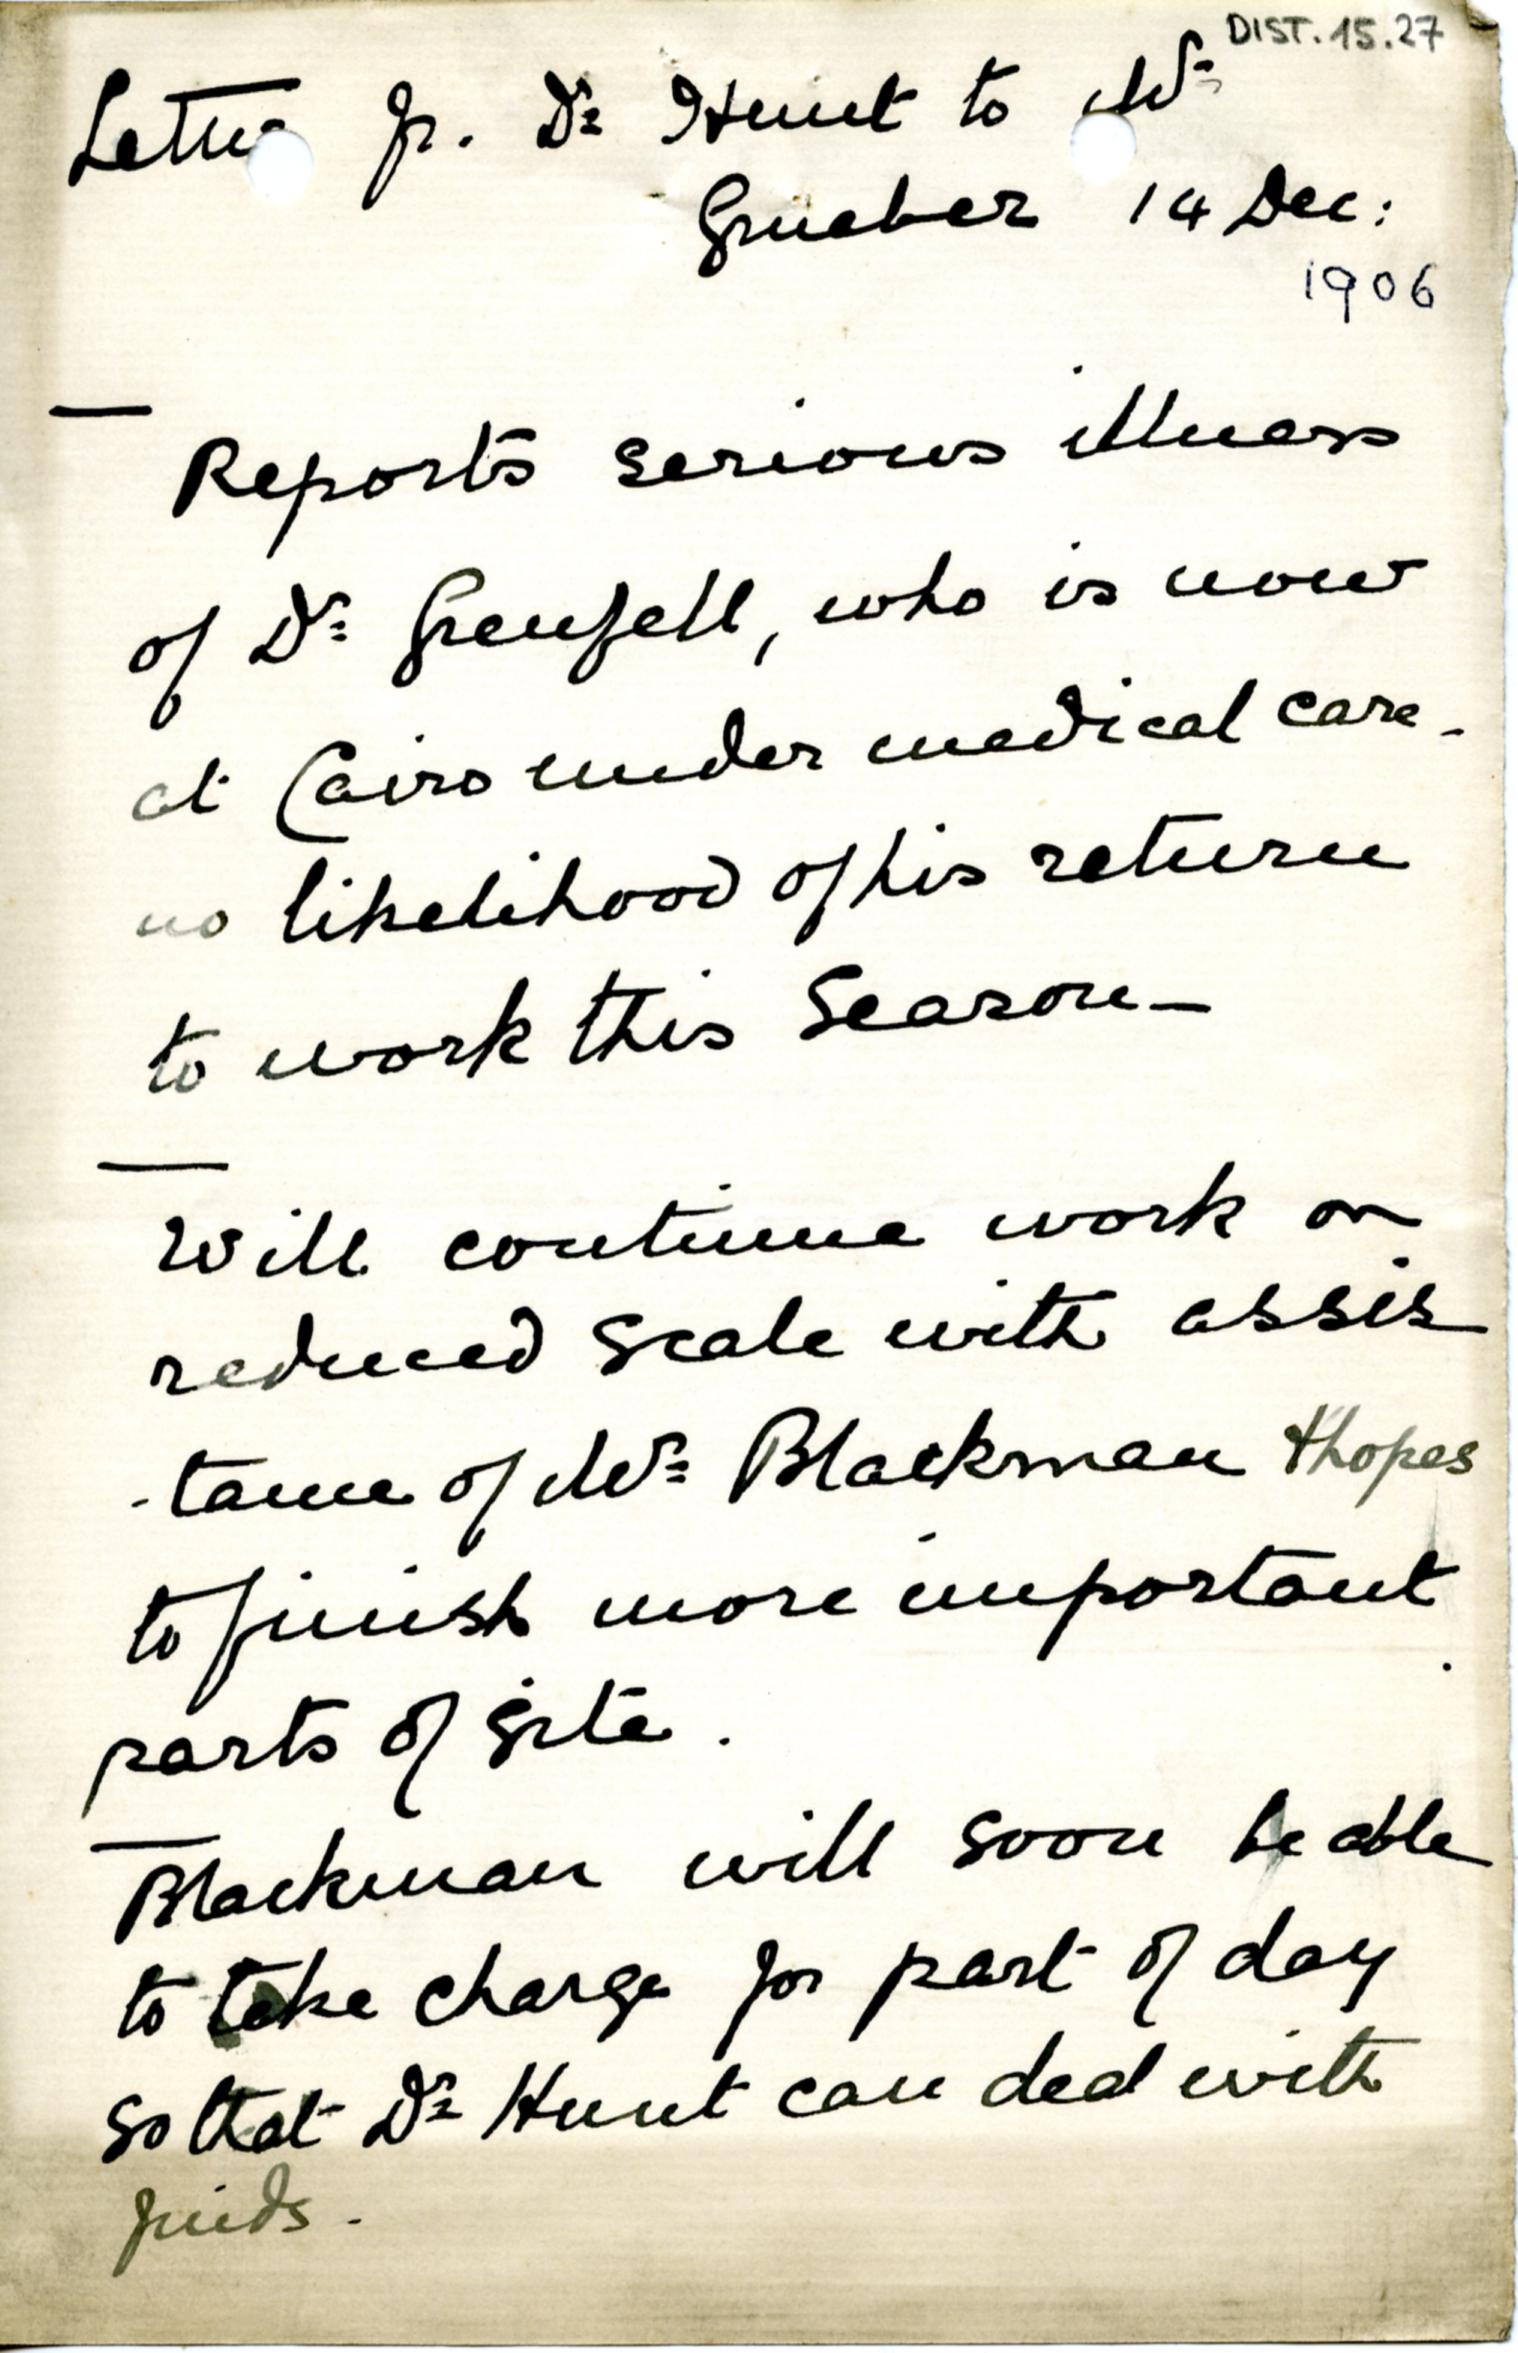 DIST.15.27
Letter fr. Dr Hunt to Mr
Grueber 14 Dec:
1906
— Reports serious illness
of Dr Grenfell, who is now
at Cairo under medical care -
no likelihood of his return
to work this Season—
— Will continue work on
reduced scale with assis
-tance of Mr Blackman & hopes
to finish more important
parts of site.
— Blackman will soon be able
to take charge for part of day
so that Dr Hunt can deal with
finds.